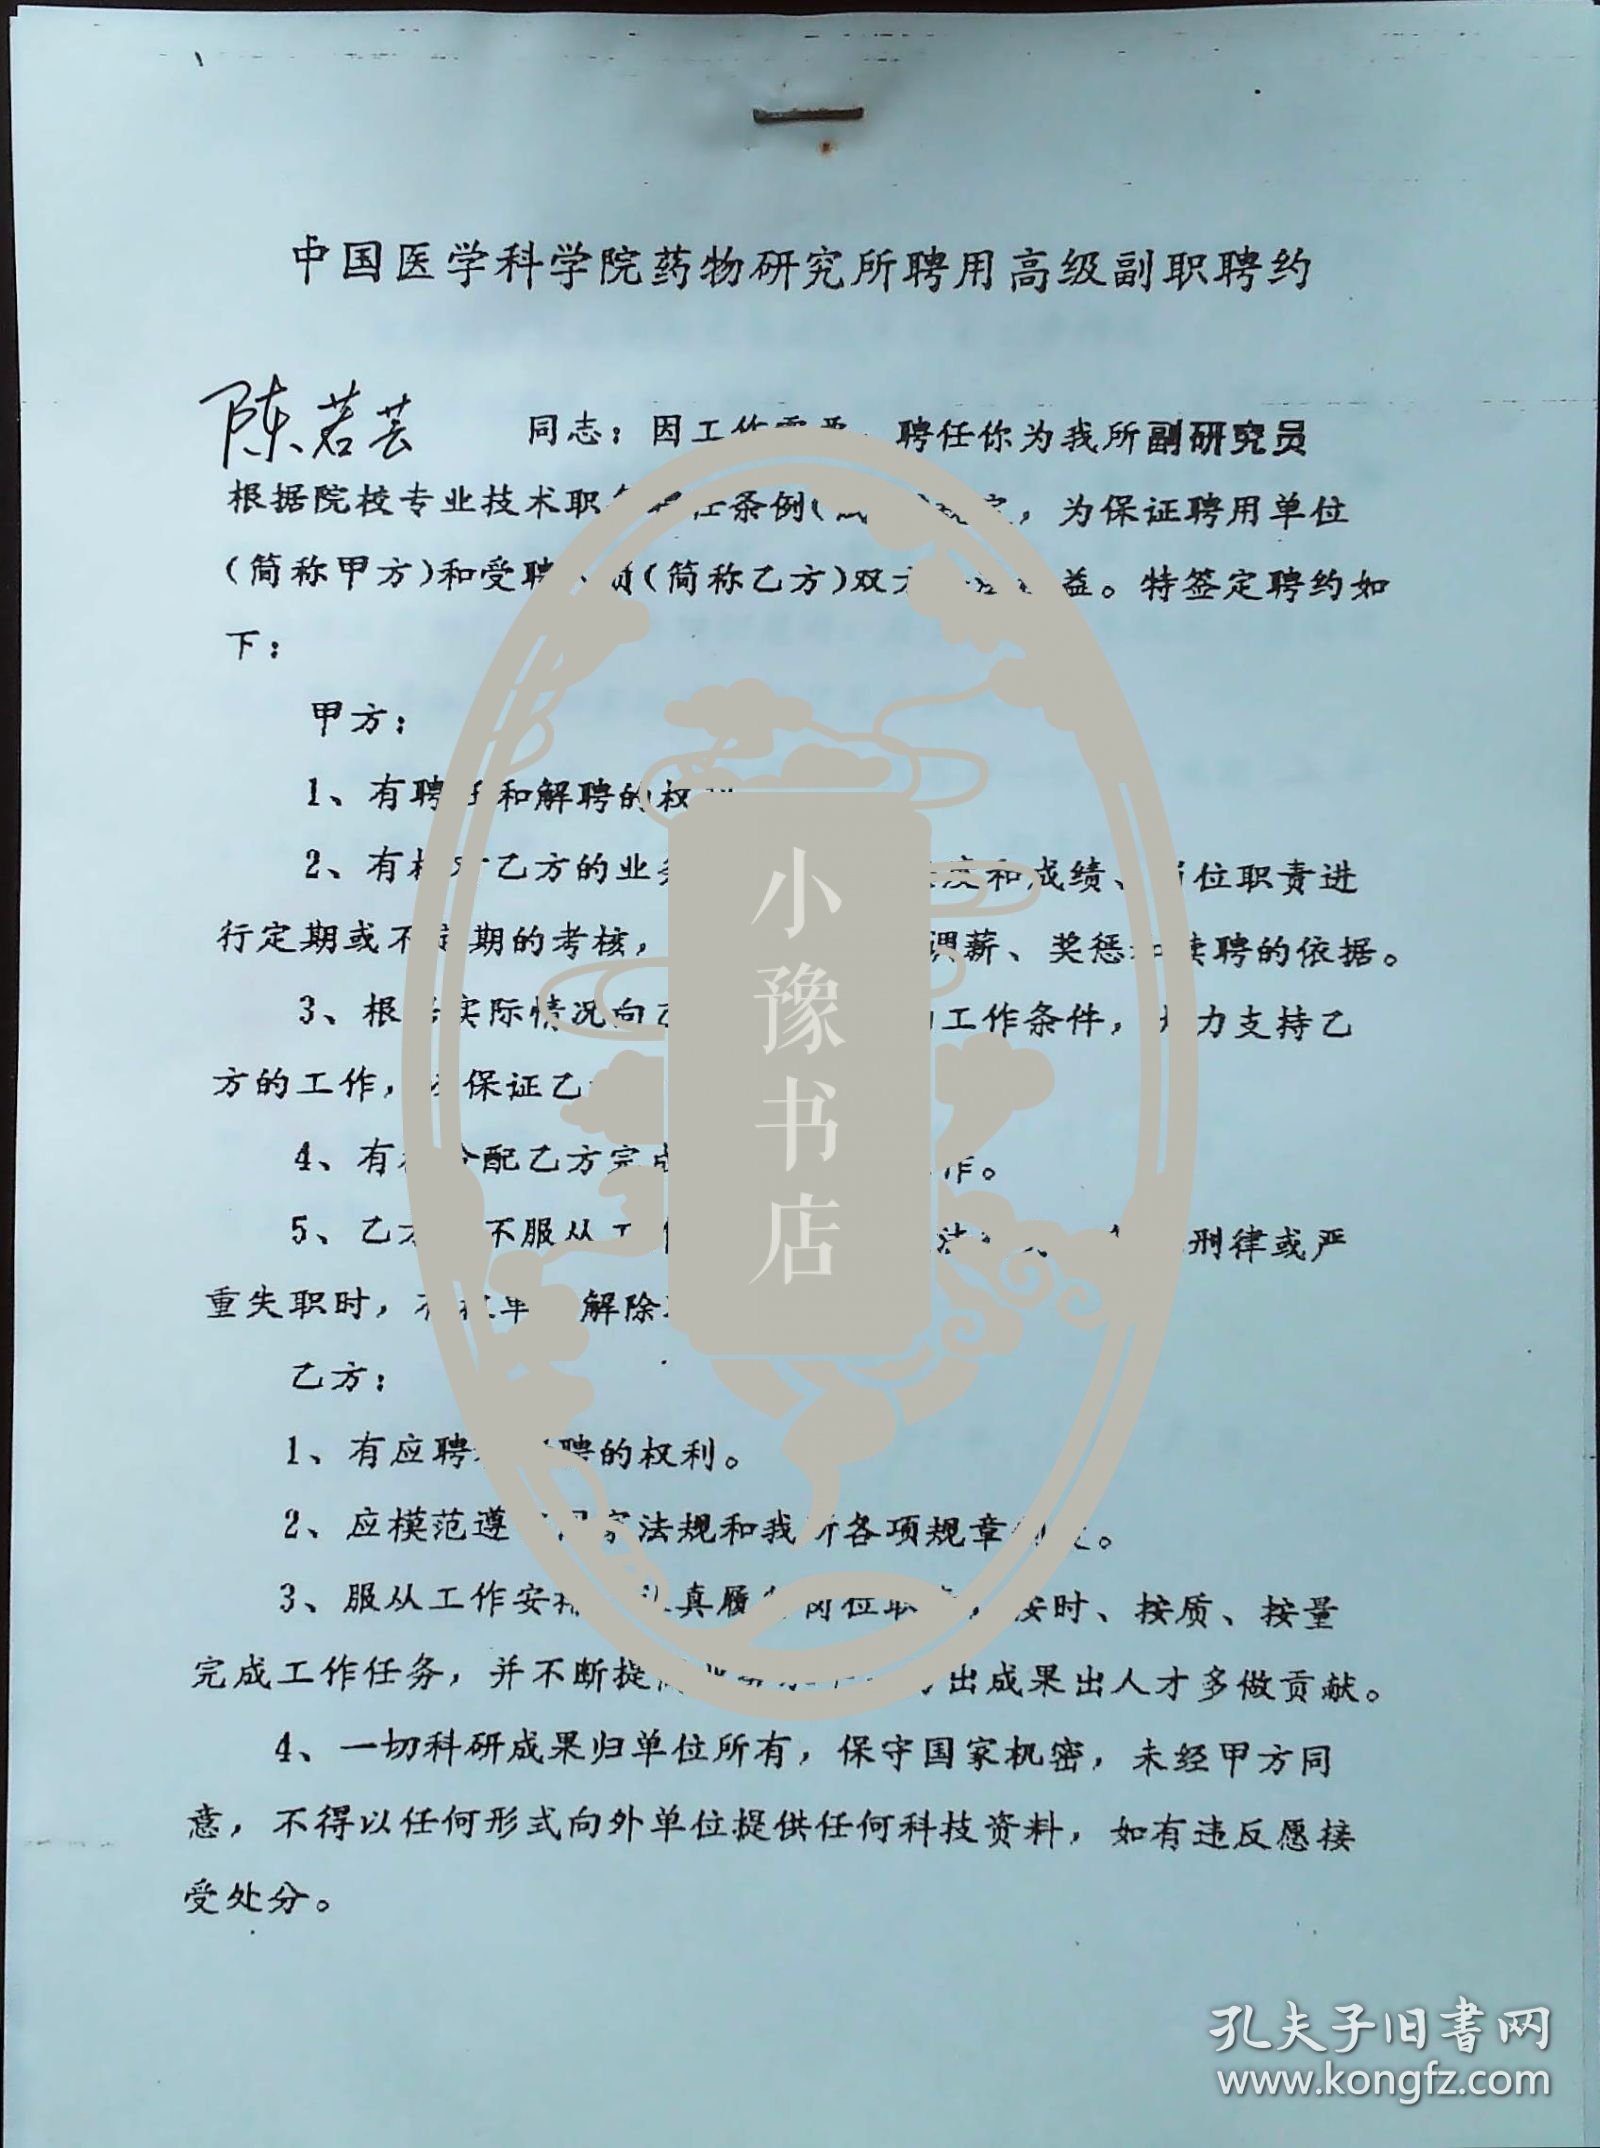 中国医学科学院药物研究所聘用高级副职聘约
陈若芸 同志：因工作需要，聘任你为我所副研究员
根据院校专业技术职务 任条例( 规定，为保证聘用单位
(简称甲方)和受聘 (简称乙方)双方 益。特签定聘约如
下：
甲方：
1、有聘任和解聘的权利
2、有权对乙方的业务 度和成绩、岗位职责进
行定期或不定期的考核， 调薪、奖惩和续聘的依据。
3、根据实际情况向乙 的工作条件，大力支持乙
方的工作， 保证乙
4、有权分配乙方完成 作。
5、乙方 不服从工作 法 刑律或严
重失职时，有权单 解除
乙方：
1、有应聘 聘的权利。
2、应模范遵 国家法规和我所各项规章制度。
3、服从工作安排 认真履行岗位职责，按时、按质、按量
完成工作任务，并不断提高业务水平 出成果出人才多做贡献。
4、一切科研成果归单位所有，保守国家机密，未经甲方同
意，不得以任何形式向外单位提供任何科技资料，如有违反愿接
受处分。
小豫书店
孔夫子旧书网
www.kongfz.com